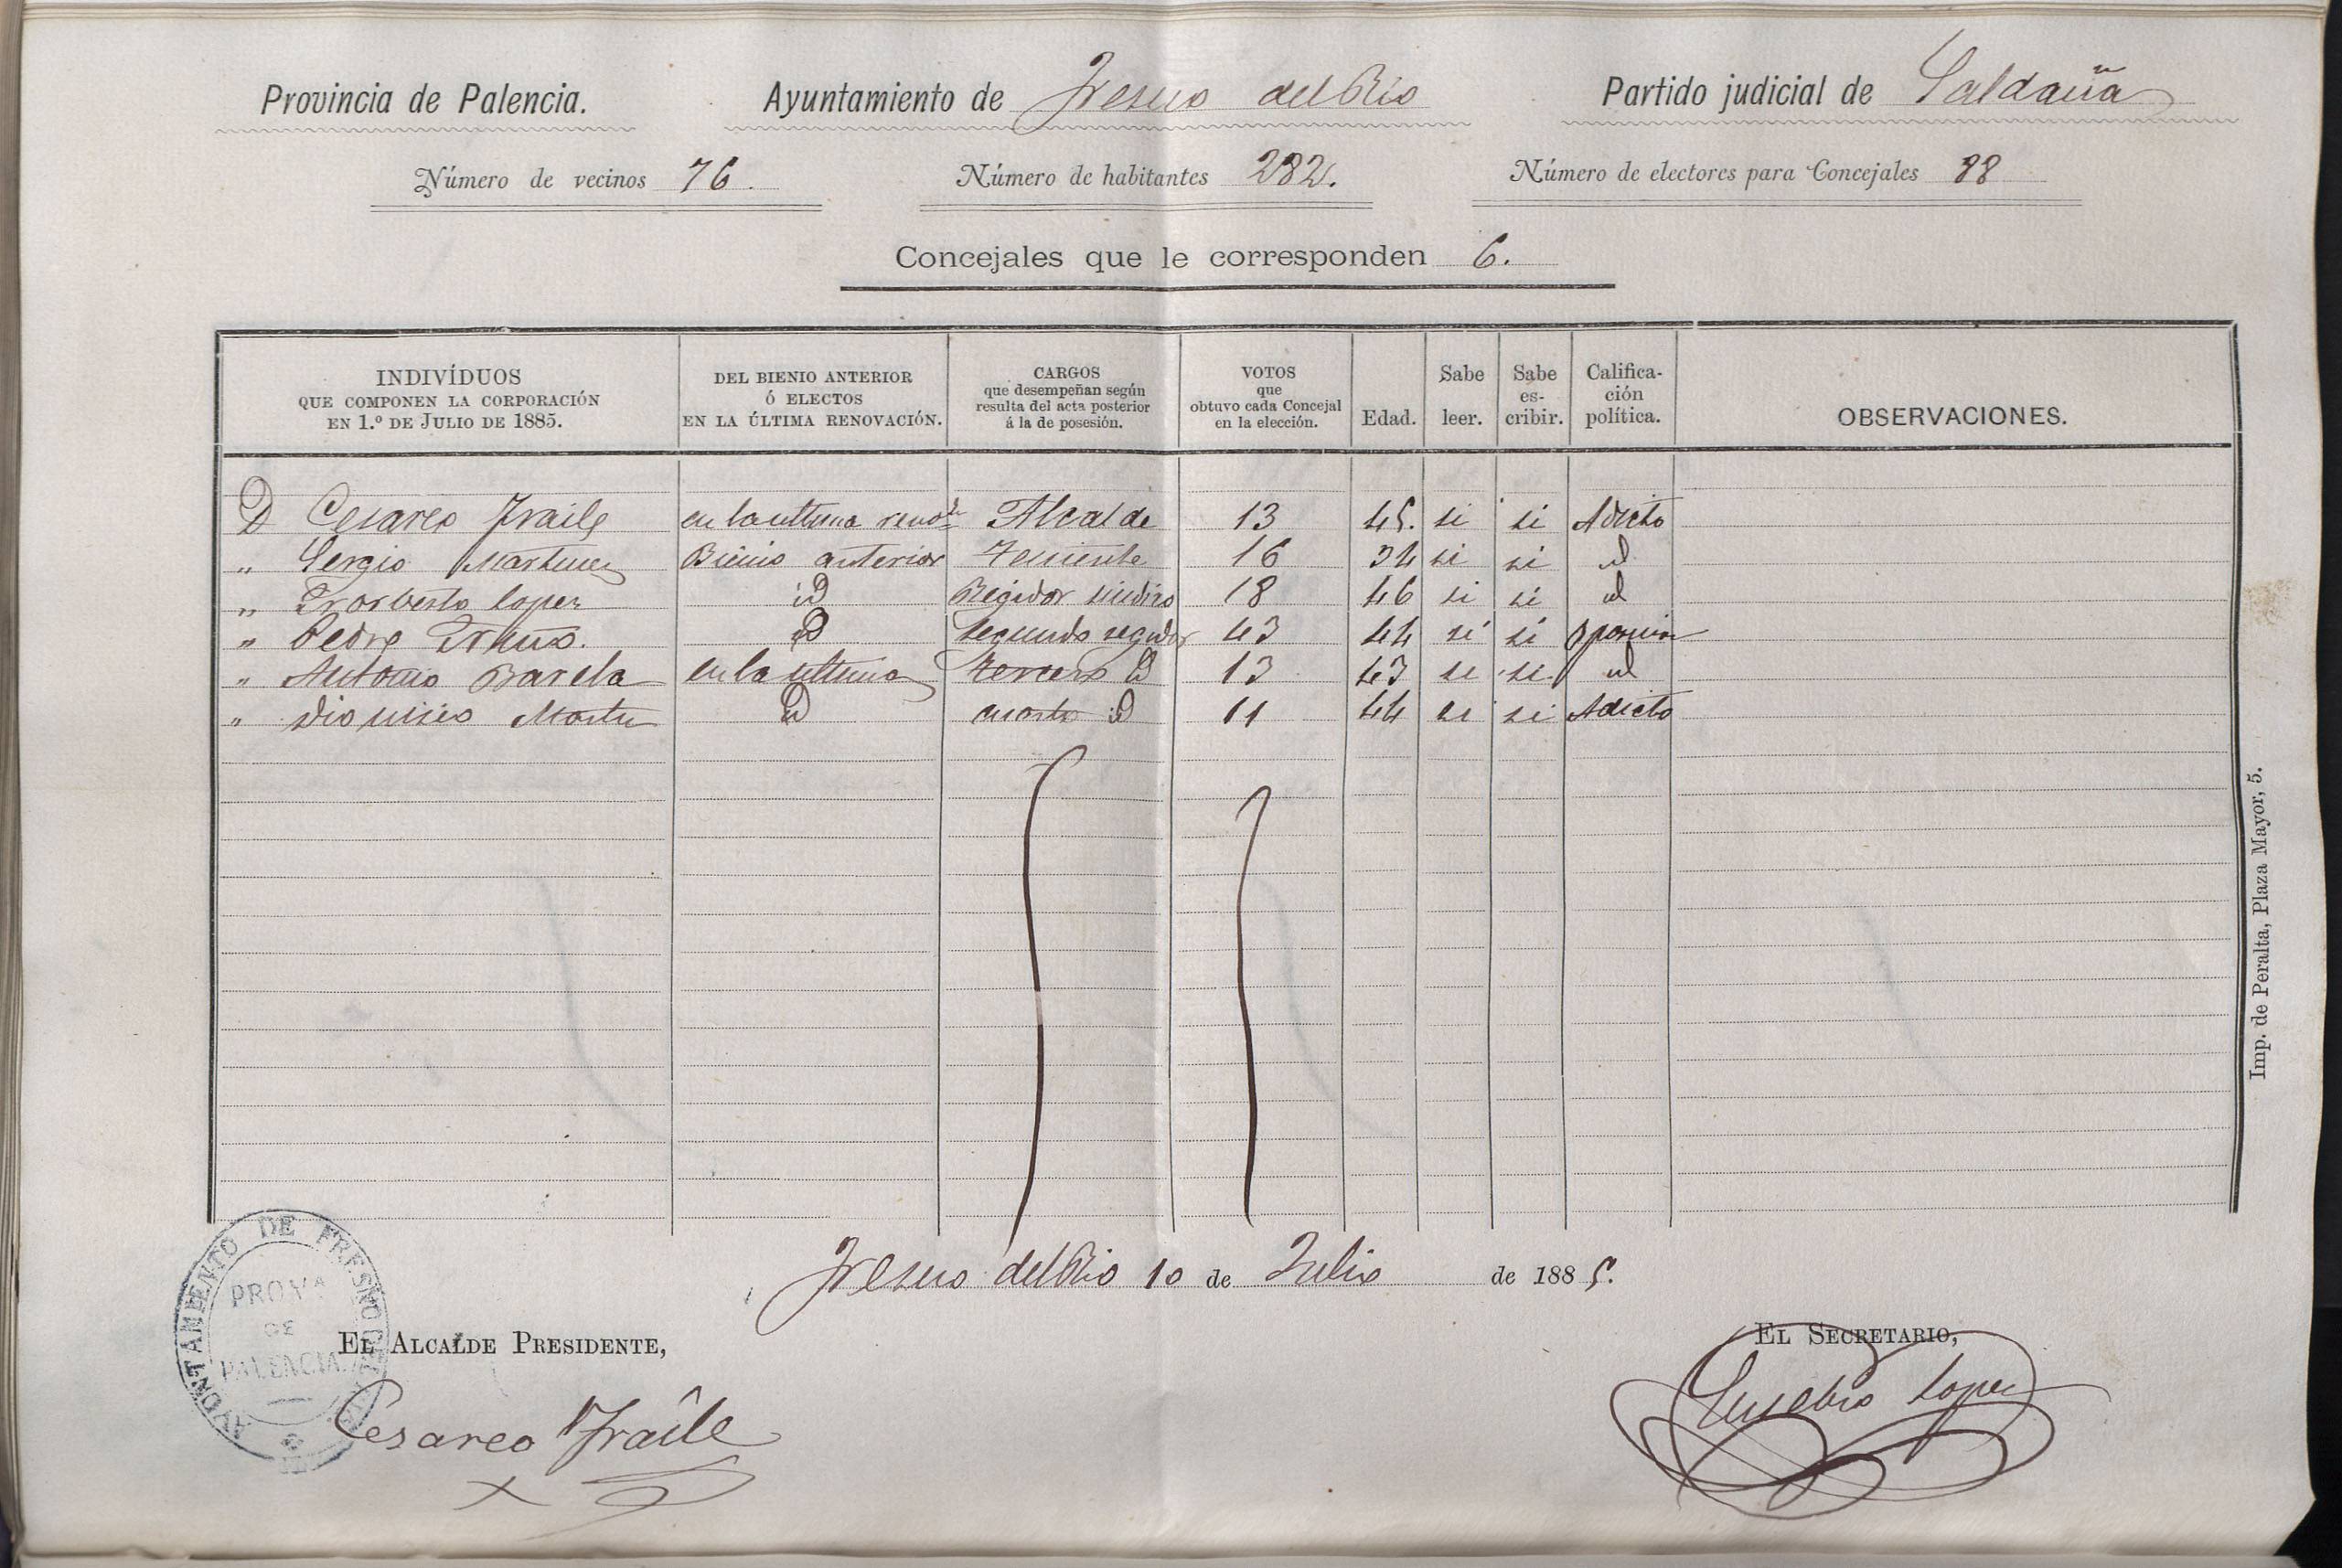 Provincia de Palencia. Ayuntamiento de Fresno del Rio Partido judicial de Saldaña
Número de vecinos 76. Número de habitantes 282. Número de electores para Concejales 88
Concejales que le corresponden 6.
INDIVÍDUOS QUE COMPONEN LA CORPORACIÓN EN 1.º DE JULIO DE 1885. DEL BIENIO ANTERIOR Ó ELECTOS EN LA ÚLTIMA RENOVACIÓN. CARGOS que desempeñan según resulta del acta posterior á la de posesión. VOTOS que obtuvo cada Concejal en la elección. Edad. Sabe leer. Sabe es-cribir. Califica-ción política. OBSERVACIONES.
D Cesareo Fraile en la ultima Alcalde 13 45. si si Adicto
" Sergio Martinez Bienio anterior Teniente 16 34 si si id
" Norberto lopez id Regidor sindico 18 46 si si id
" Pedro id segundo regidor 43 44 si si
" Antonio Barela en la ultima tercero id 13 43 si si id
" Dionisio id cuarto id 11 44 si si Adicto
Fresno del Rio 10 de Julio de 1885.
AYUNTAMIENTO DE FRESNO DEL RIO
PROV.ª
DE
PALENCIA.
EL ALCALDE PRESIDENTE, EL SECRETARIO,
Cesareo Fraile Eusebio Lopez
Imp. de Peralta, Plaza Mayor, 5.